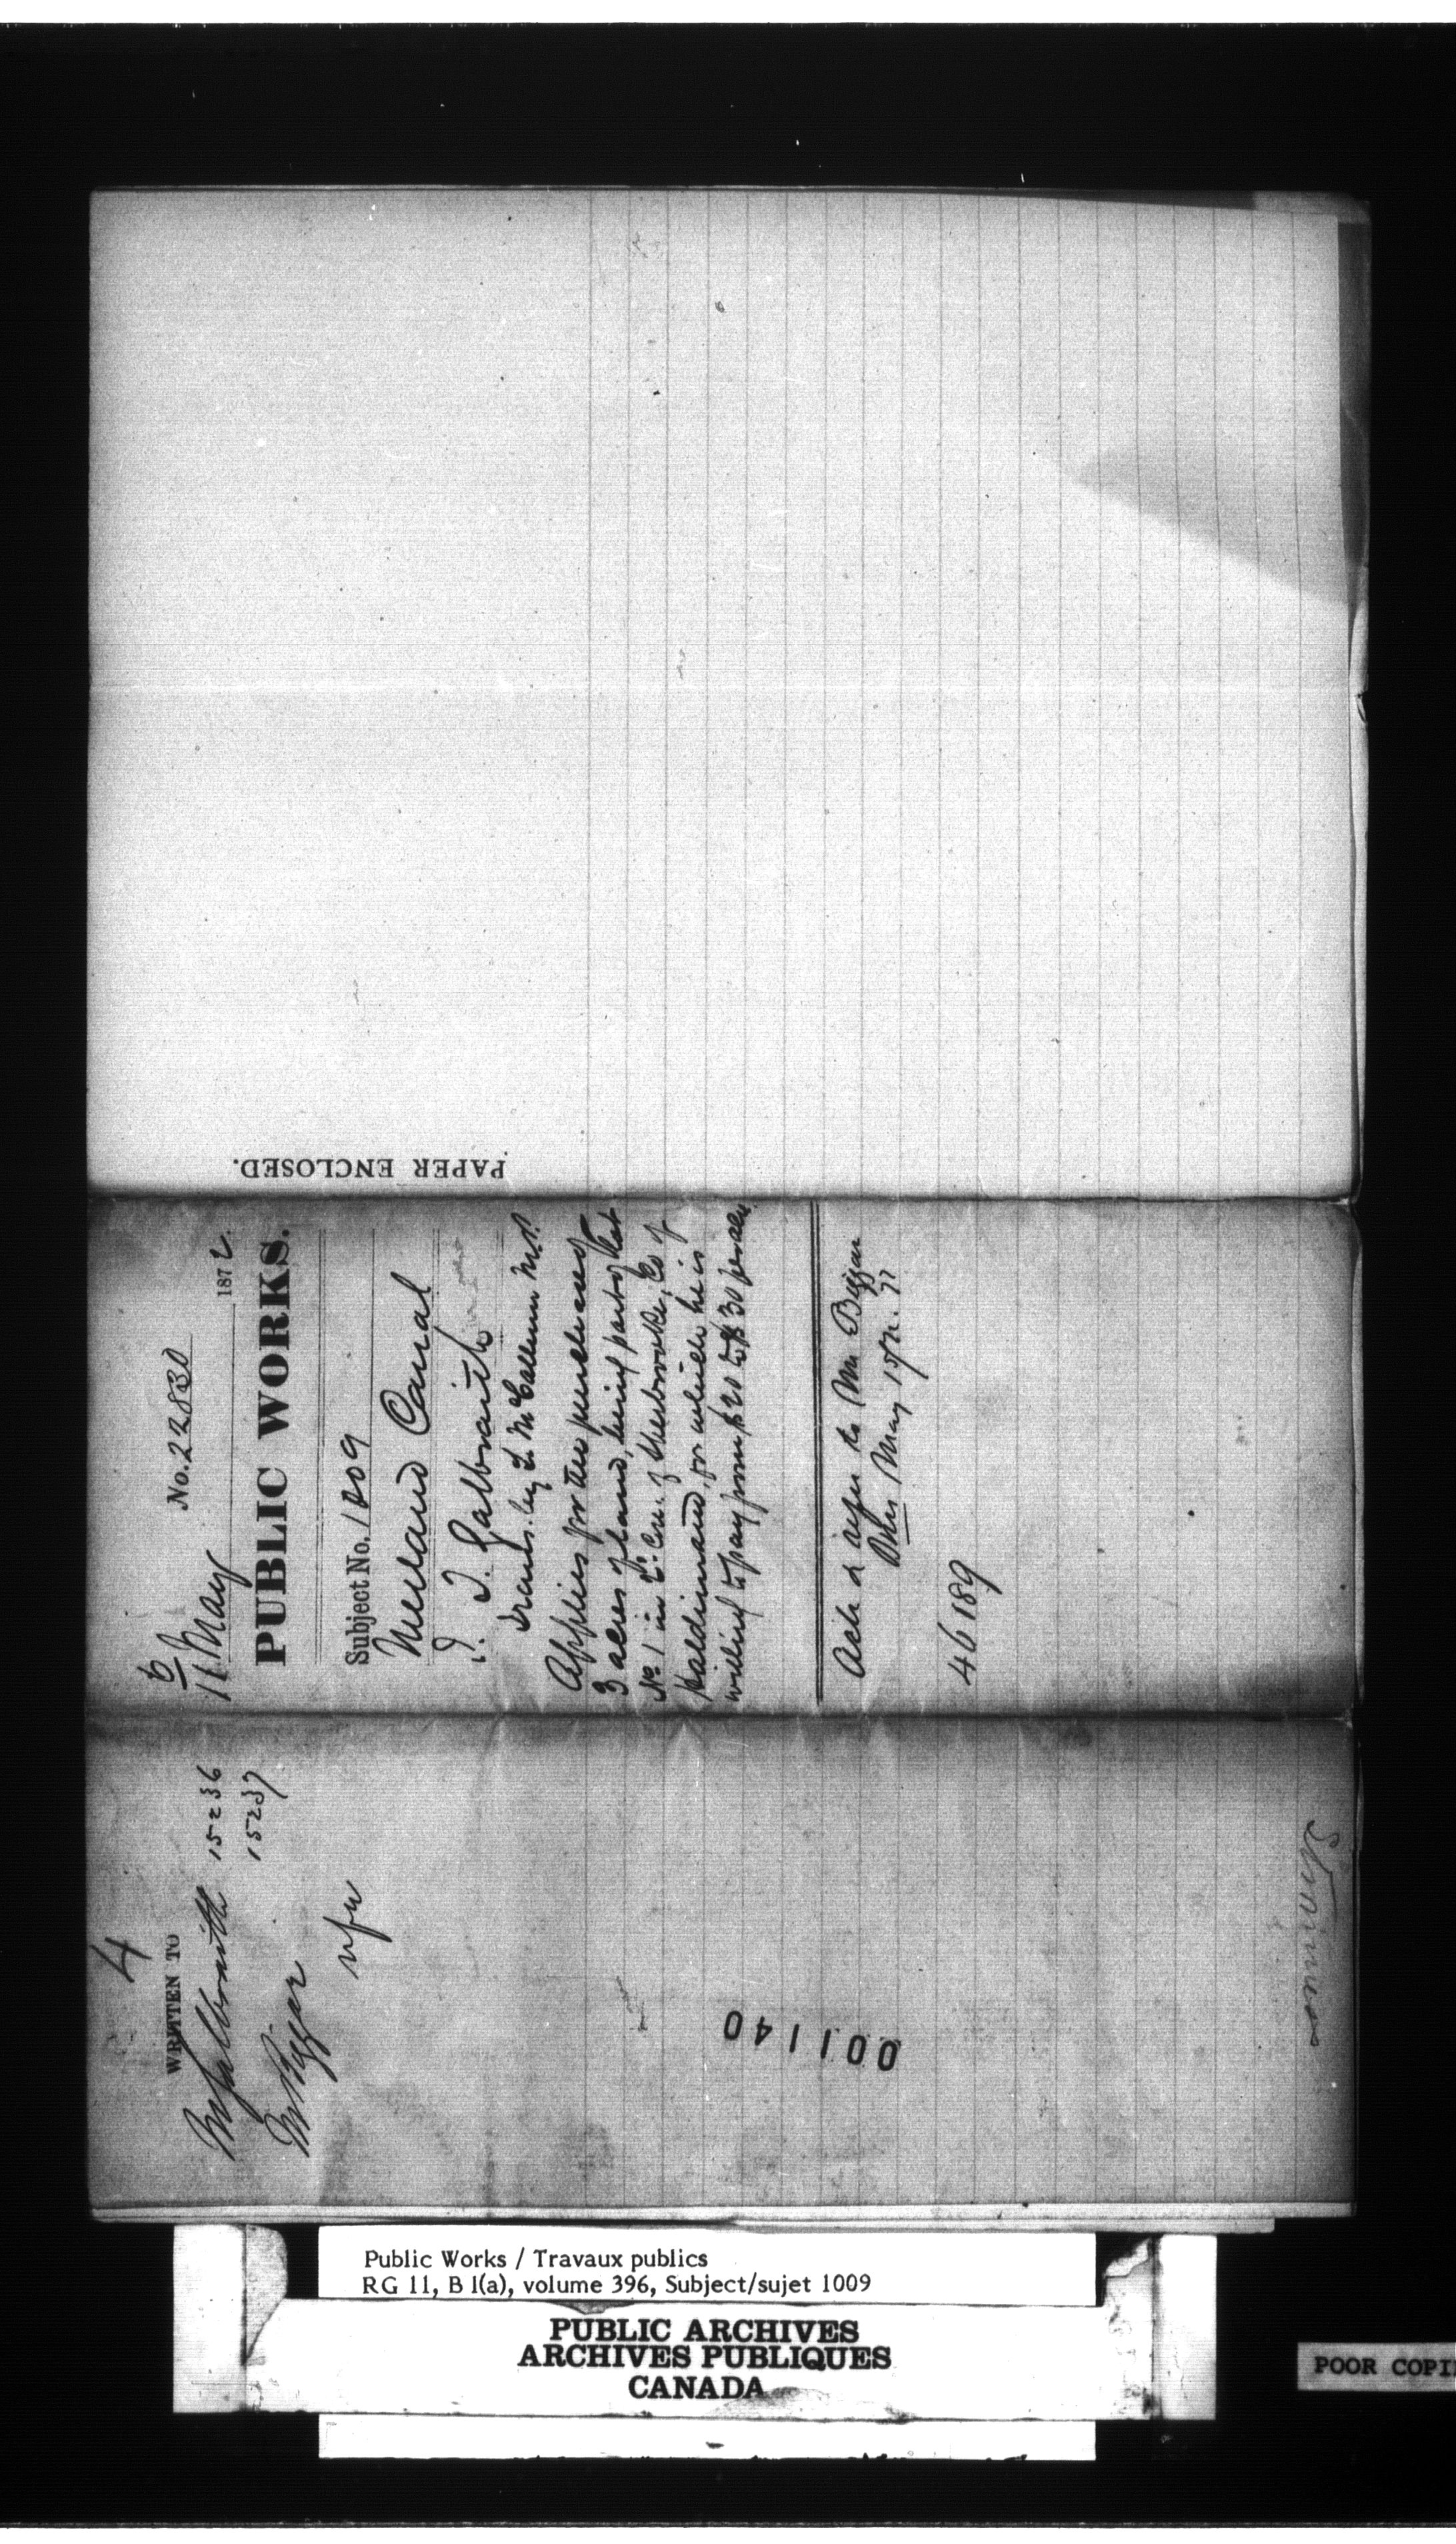 PAPER ENCLOSED.
6
11 May
No. 22830
1872.
PUBLIC WORKS.
Subject No. 1009
Welland Canal
T. Galbraith
Trans. by L. McCallum M.P.
Applies for the purchase of
3 acres of land, being part of Lot
No. 1 in Con. of Sherbrooke, Co of
Haldimand, for which he is
willing to pay from $20 to $30 per acre.
Ack & refer to Mr. Biggar
May 15/72.
46189
4
WRITTEN TO
Mr Galbraith 15236
Mr Biggar 15237
001140
Public Works / Travaux publics
RG 11, B 1(a), volume 396, Subject/sujet 1009
PUBLIC ARCHIVES
ARCHIVES PUBLIQUES
CANADA
POOR COPI